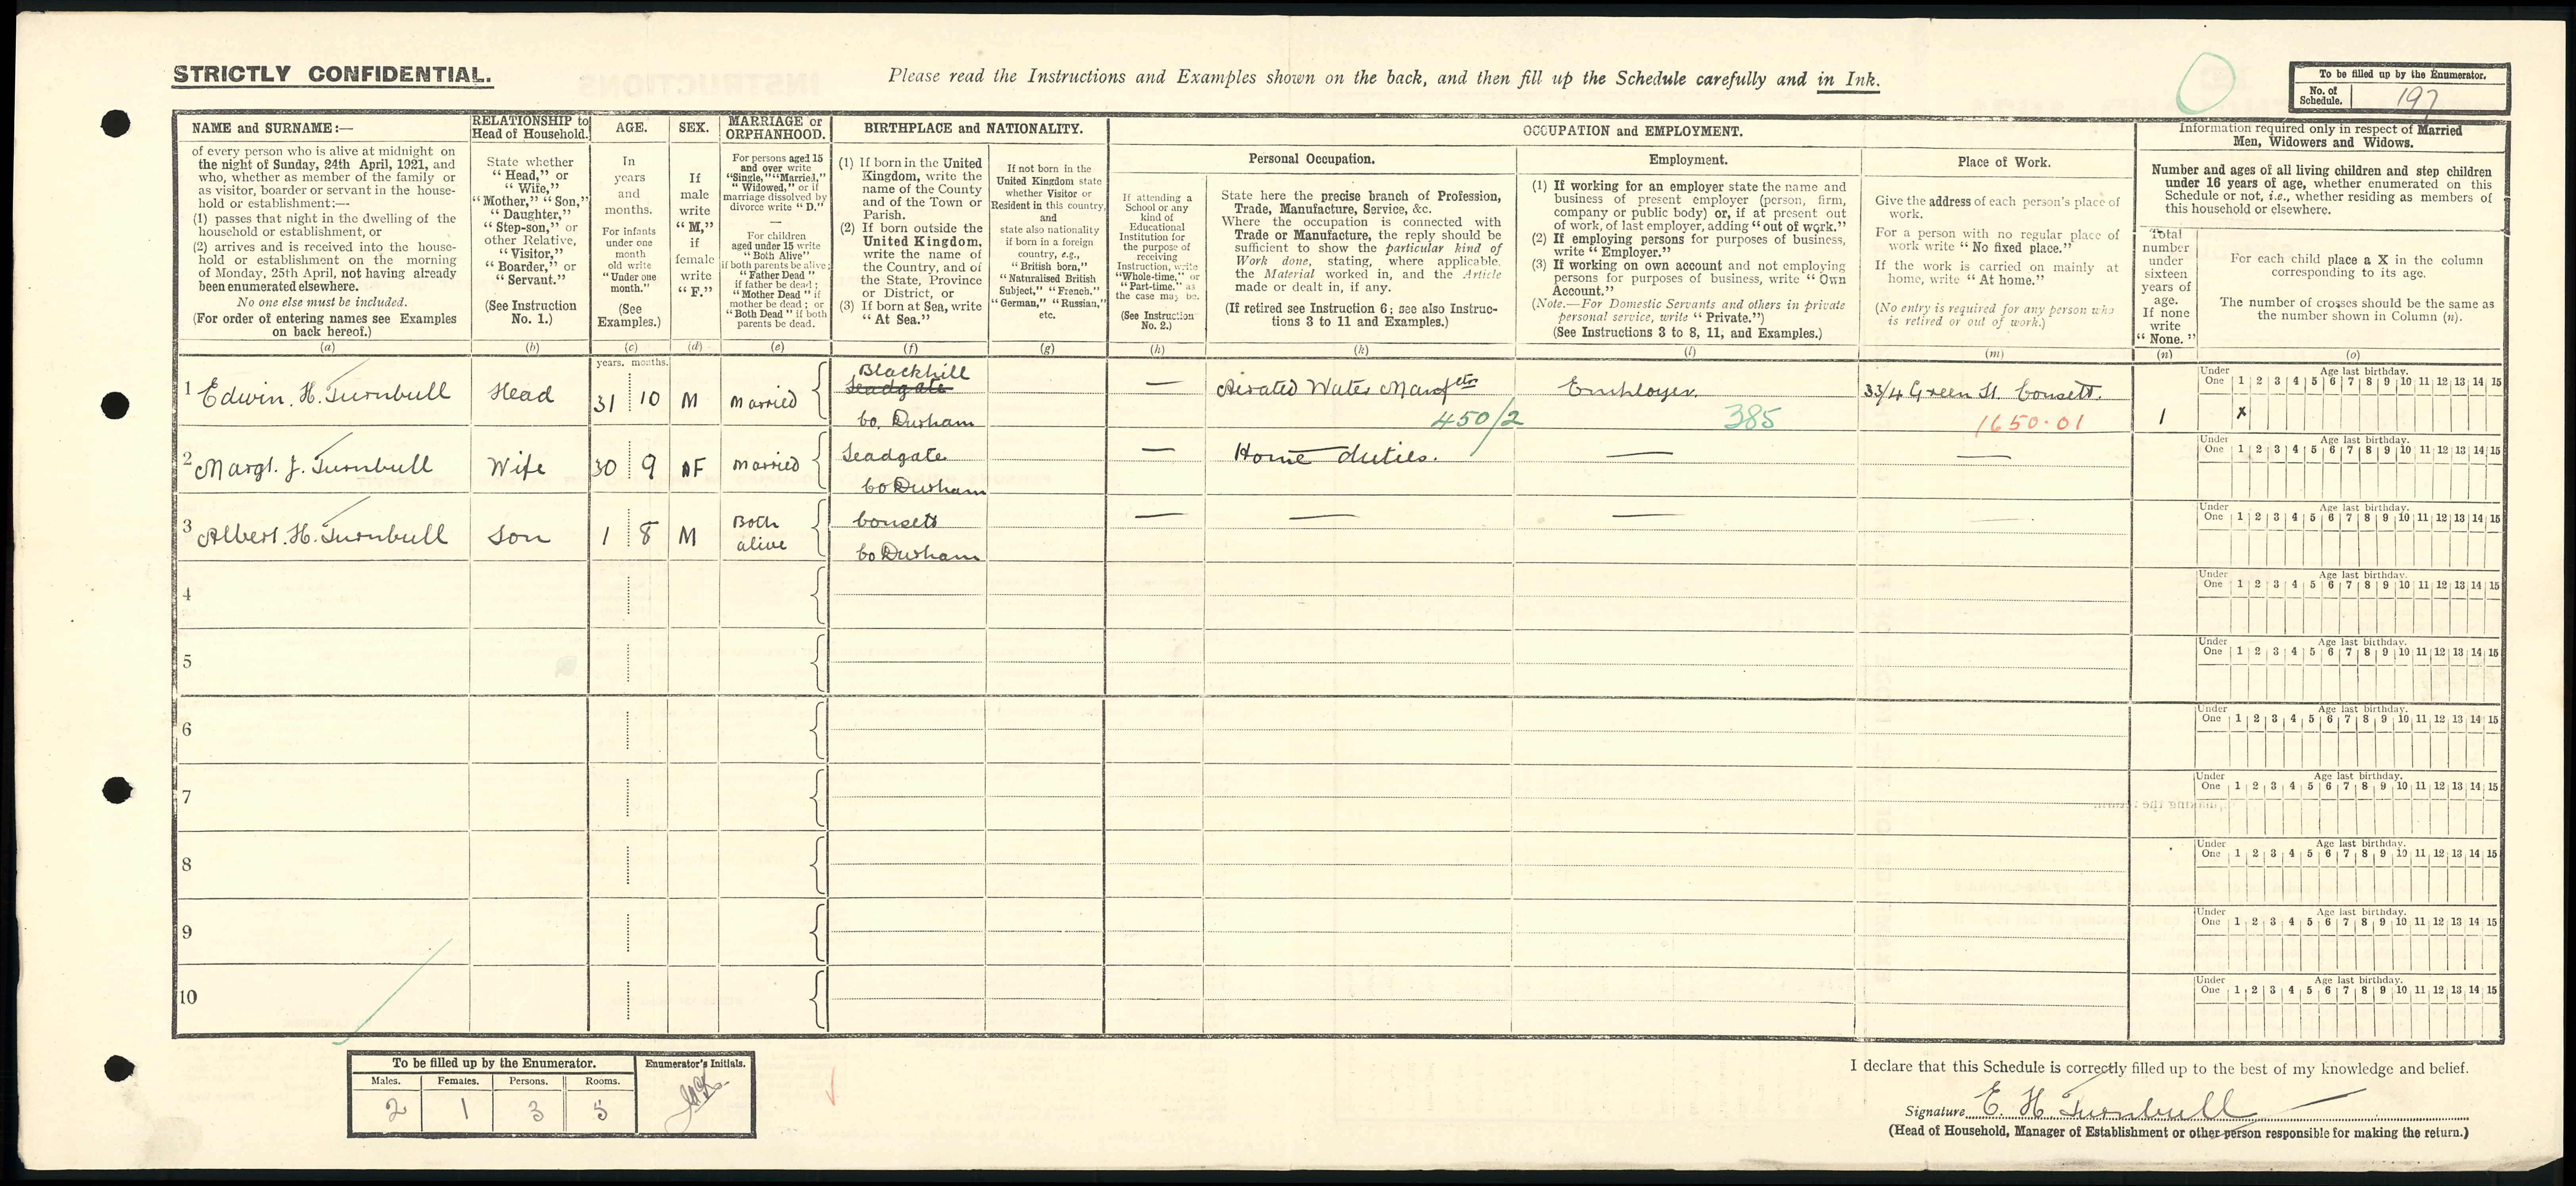 STRICTLY CONFIDENTIAL.
Please read the Instructions and Examples shown on the back, and then fill up the Schedule carefully and in Ink.
To be filled up by the Enumerator.
No. of Schedule. 197
NAME and SURNAME:—
of every person who is alive at midnight on
the night of Sunday, 24th April, 1921, and
who, whether as member of the family or
as visitor, boarder or servant in the house-
hold or establishment:—
(1) passes that night in the dwelling of the
household or establishment, or
(2) arrives and is received into the house-
hold or establishment on the morning
of Monday, 25th April, not having already
been enumerated elsewhere.
No one else must be included.
(For order of entering names see Examples
on back hereof.)
(a)
RELATIONSHIP to
Head of Household.
State whether
"Head," or
"Wife,"
"Mother," "Son,"
"Daughter,"
"Step-son," or
other Relative,
"Visitor,"
"Boarder," or
"Servant."
(See Instruction
No. 1.)
(b)
AGE.
In
years
and
months.
For infants
under one
month
old write
"Under one
month."
(See
Examples.)
(c)
SEX.
If
male
write
"M,"
if
female
write
"F."
(d)
MARRIAGE or
ORPHANHOOD.
For persons aged 15
and over write
"Single," "Married,"
"Widowed," or if
marriage dissolved by
divorce write "D."
—
For children
aged under 15 write
"Both Alive"
if both parents be alive;
"Father Dead"
if father be dead;
"Mother Dead" if
mother be dead; or
"Both Dead" if both
parents be dead.
(e)
BIRTHPLACE and NATIONALITY.
(1) If born in the United
Kingdom, write the
name of the County
and of the Town or
Parish.
(2) If born outside the
United Kingdom,
write the name of
the Country, and of
the State, Province
or District, or
(3) If born at Sea, write
"At Sea."
(f)
If not born in the
United Kingdom state
whether Visitor or
Resident in this country,
and
state also nationality
if born in a foreign
country, e.g.,
"British born,"
"Naturalised British
Subject," "French,"
"German," "Russian,"
etc.
(g)
OCCUPATION and EMPLOYMENT.
Personal Occupation.
If attending a
School or any
kind of
Educational
Institution for
the purpose of
receiving
Instruction, write
"Whole-time," or
"Part-time," as
the case may be.
(See Instruction
No. 2.)
(h)
State here the precise branch of Profession,
Trade, Manufacture, Service, &c.
Where the occupation is connected with
Trade or Manufacture, the reply should be
sufficient to show the particular kind of
Work done, stating, where applicable,
the Material worked in, and the Article
made or dealt in, if any.
(If retired see Instruction 6; see also Instruc-
tions 3 to 11 and Examples.)
(k)
Employment.
(1) If working for an employer state the name and
business of present employer (person, firm,
company or public body) or, if at present out
of work, of last employer, adding "out of work."
(2) If employing persons for purposes of business,
write "Employer."
(3) If working on own account and not employing
persons for purposes of business, write "Own
Account."
(Note.—For Domestic Servants and others in private
personal service, write "Private.")
(See Instructions 3 to 8, 11, and Examples.)
(l)
Place of Work.
Give the address of each person's place of
work.
For a person with no regular place of
work write "No fixed place."
If the work is carried on mainly at
home, write "At home."
(No entry is required for any person who
is retired or out of work.)
(m)
Information required only in respect of Married
Men, Widowers and Widows.
Number and ages of all living children and step children
under 16 years of age, whether enumerated on this
Schedule or not, i.e., whether residing as members of
this household or elsewhere.
Total
number
under
sixteen
years of
age.
If none
write
"None."
(n)
For each child place a X in the column
corresponding to its age.
The number of crosses should be the same as
the number shown in Column (n).
(o)
years. months.
Under One Age last birthday.
1 2 3 4 5 6 7 8 9 10 11 12 13 14 15
1 Edwin. H. Turnbull Head 31 10 M Married Blackhill Leadgate Co. Durham — Aerated Water Manfctr Employer. 33/4 Green St. Consett. 1 x
450/2 385 1650.01
Under One Age last birthday.
1 2 3 4 5 6 7 8 9 10 11 12 13 14 15
2 Margt. J. Turnbull Wife 30 9 F Married Leadgate Co Durham — Home duties. — —
Under One Age last birthday.
1 2 3 4 5 6 7 8 9 10 11 12 13 14 15
3 Albert. H. Turnbull Son 1 8 M Both alive Consett Co Durham — — — —
Under One Age last birthday.
1 2 3 4 5 6 7 8 9 10 11 12 13 14 15
4
Under One Age last birthday.
1 2 3 4 5 6 7 8 9 10 11 12 13 14 15
5
Under One Age last birthday.
1 2 3 4 5 6 7 8 9 10 11 12 13 14 15
6
Under One Age last birthday.
1 2 3 4 5 6 7 8 9 10 11 12 13 14 15
7
Under One Age last birthday.
1 2 3 4 5 6 7 8 9 10 11 12 13 14 15
8
Under One Age last birthday.
1 2 3 4 5 6 7 8 9 10 11 12 13 14 15
9
Under One Age last birthday.
1 2 3 4 5 6 7 8 9 10 11 12 13 14 15
10
Under One Age last birthday.
1 2 3 4 5 6 7 8 9 10 11 12 13 14 15
To be filled up by the Enumerator.
Males. Females. Persons. Rooms.
2 1 3 5
Enumerator's Initials.
I declare that this Schedule is correctly filled up to the best of my knowledge and belief.
Signature E. H. Turnbull
(Head of Household, Manager of Establishment or other person responsible for making the return.)